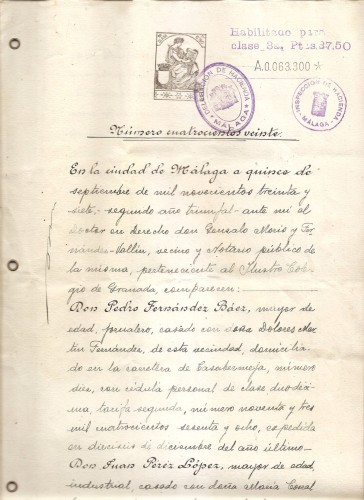 Habilitado para
clase 8a, Pts.37,50
A.0.063.300
DELEGACION DE HACIENDA
MALAGA
INSPECCION DE HACIENDA
MALAGA
Número cuatrocientos veinte.
En la ciudad de Málaga a quince de
septiembre de mil novecientos treinta y
siete,- segundo año triunfal- ante mí el
Doctor en Derecho don Gonzalo
Vallín, vecino y Notario público de
la misma, perteneciente al Ilustre Cole-
gio de Granada, comparecen:
Don Pedro Fernández Báez, mayor de
edad, jornalero, casado con doña Dolores Mar-
tín Fernández, de esta vecindad, domicilia-
do en la carretera de Casabermeja, número
diez, con cédula personal de clase duodéci-
ma, tarifa segunda, número noventa y tres
mil cuatrocientos sesenta y ocho, expedida
en dieciseis de diciembre del año último.-
Don Juan Perez López, mayor de edad,
industrial, casado con doña María